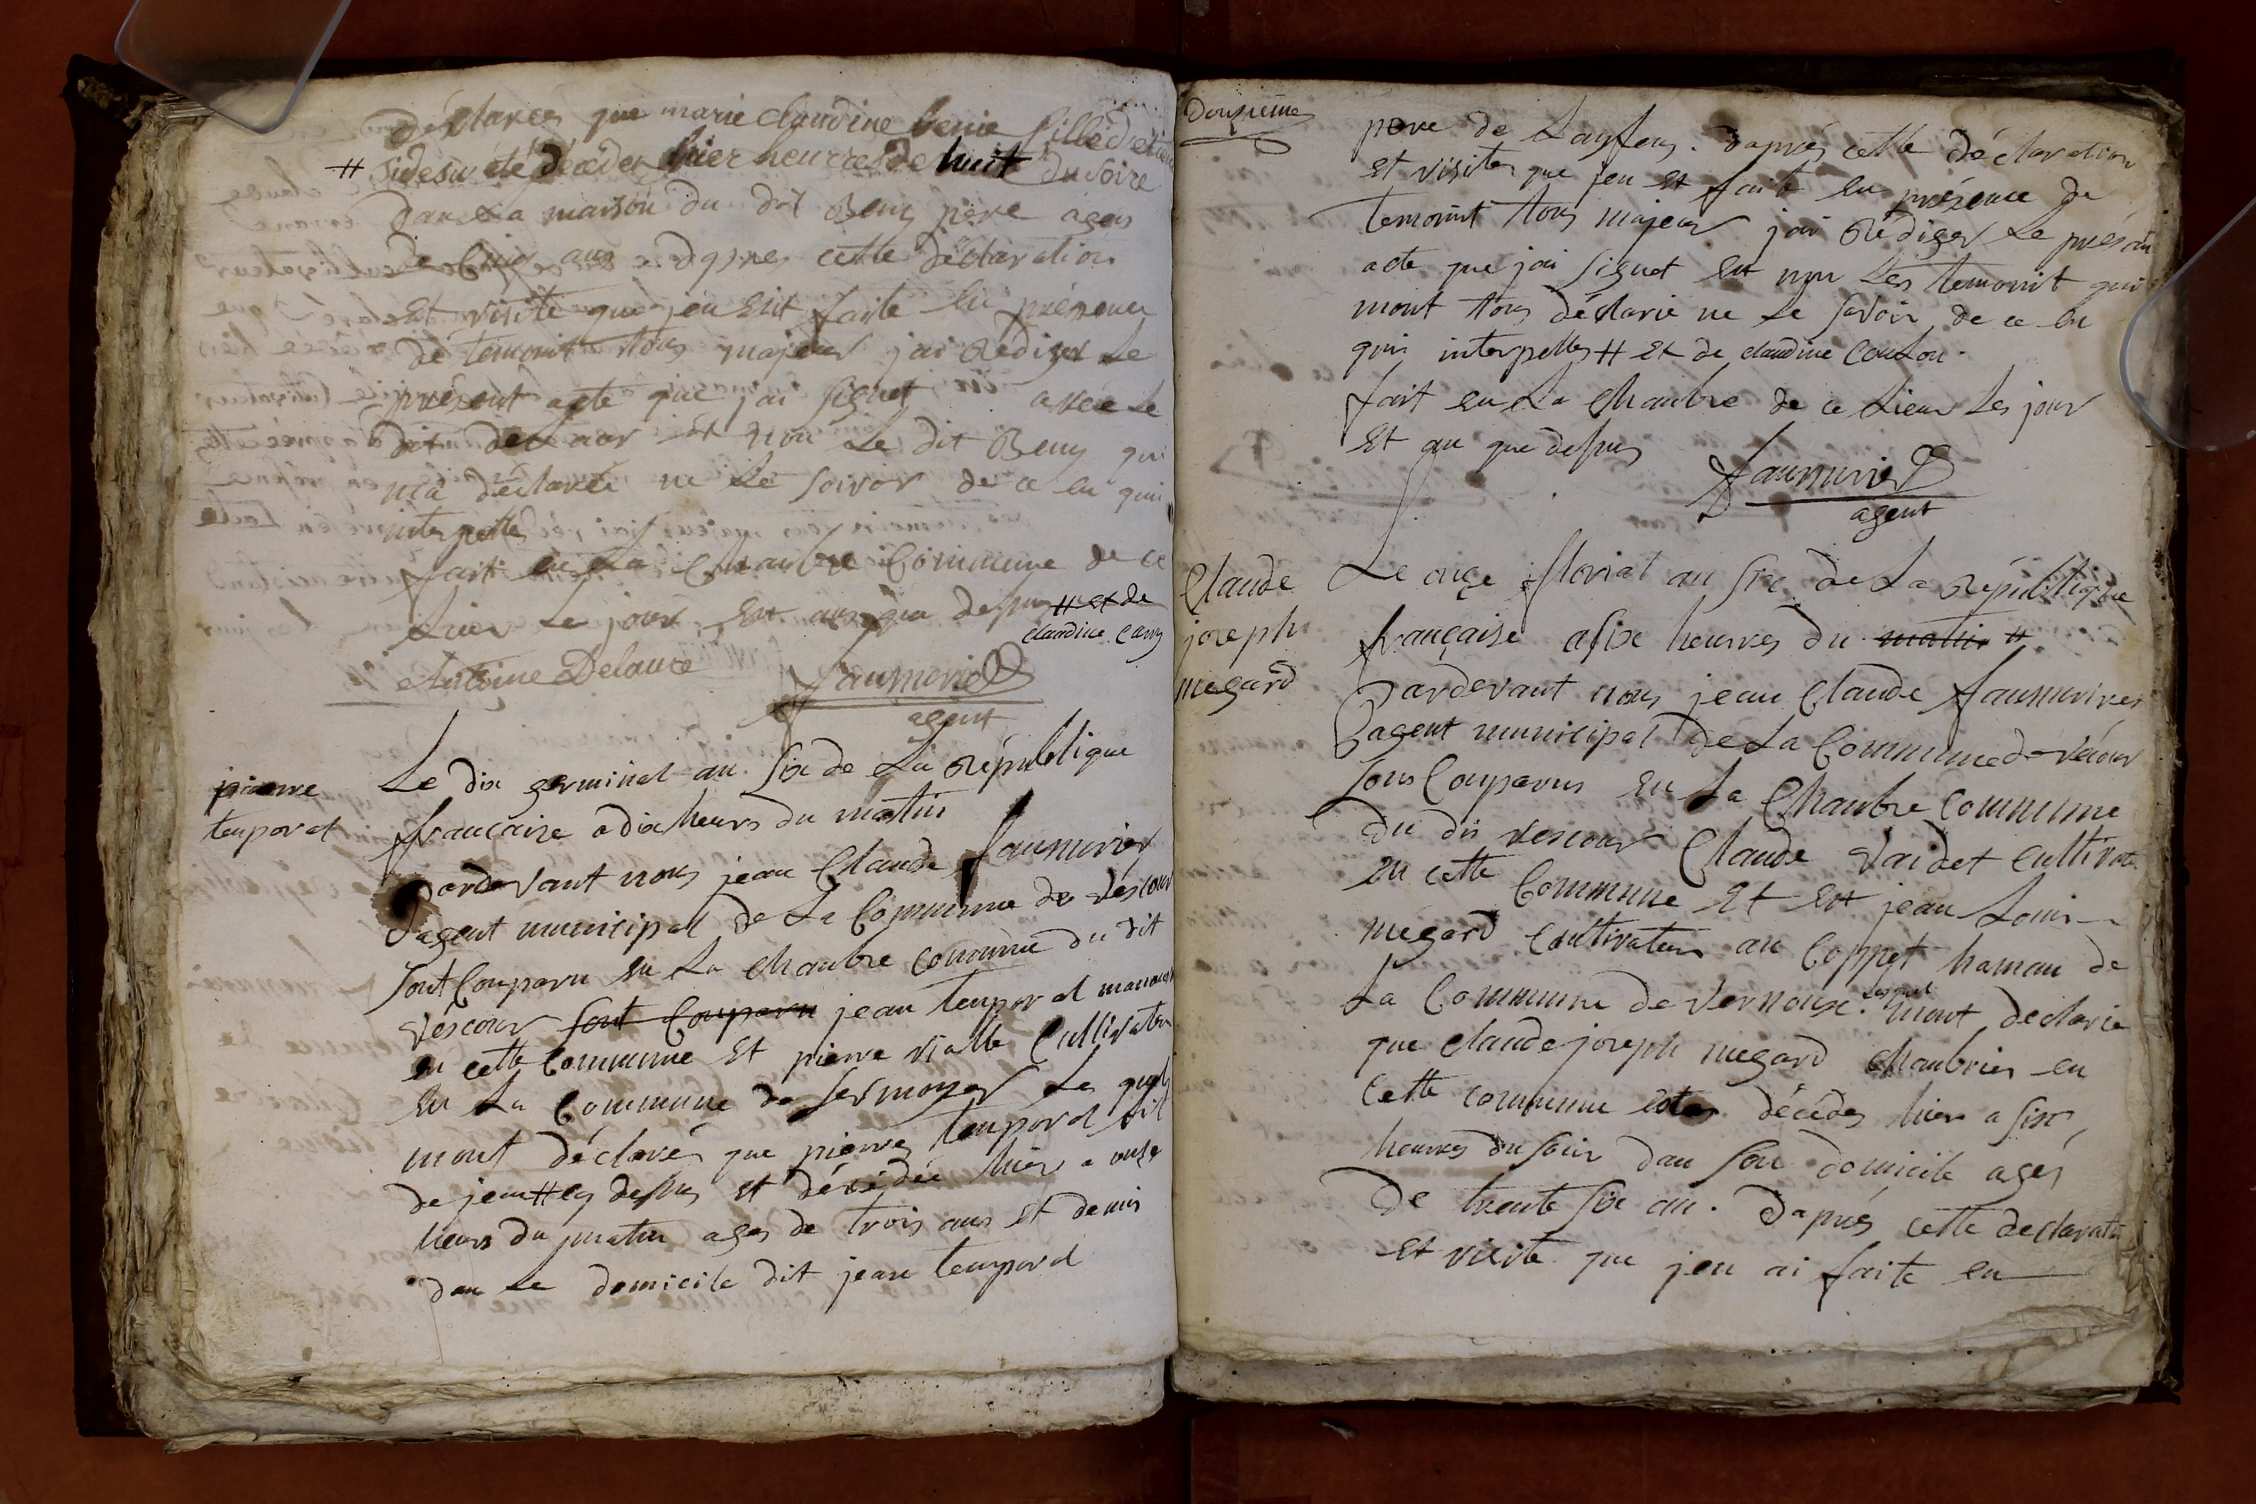 déclarée que marie claudine benie fille detien
# sidesu été décédée hier heurre de huit du soire
dans La maison du dit Beny père agée
de cinq ans daprés cette déclaration
Et visite que jeu Eut faite En présence
de temoint tous majeur jai Rédiger Le
présent acte que jai signet avec Le
dit delaur et non Le dit Beny qui
ma déclaré ne Le savoir de ce en quis
interpellé
fait en La Chambre Commune de ce
Lieu Le jour Et an que desus # et de
claudine carry
Antoine Delaure faumurier
agent
pierre
temporal
Le dix germinal an six de La république
française a dix heurs du matin
Pardevant nous jean Claude faumurier
agent municipal de La Commune de vescour
sont Comparu en La chambre commune du dit
vescour sont Comparu jean temporal manouv
en cette Commune Et pierre vialle Cultivateur
En La Commune de sermoyer Les quels
mont déclarés que pierre temporal fil
de jean # cy desus et décédée hier a onze
heurs du matin ages de trois ans et demis
dan Le domicile dit jean temporal
Douzieme
pere de Lanfens. daprés cette déclaration
et visites que jeu et faite en présence de
temoint tous majeur jai Rédiger Le présan
acte que jai signet Et non Les temoint qui
mont tous déclarie ne Le savoir de ce En
quis interpelles # et de claudine Coulon.
fait en La Chambre de ce Lieu Les jour
Et an que desus
faumurier
agent
Claude
joseph
megard
Le onze florial an six de La république
française a six heurres du matin #
Pardevant nous jean Claude faumurier
agent municipal de La Commune de vécour
sons Comparus en La Chambre Commune
du dis vescour Claude vaidet cultivate
en cette Commune Et Ent jean Louis
megard cultivateur au Coppet hamau de
La Commune de vernoux. Lesquel mont declarie
que claude joseph megard chambrier en
cette commune etes décédes hier a six
heurres du soir dan son domicile agés
De trente six an. Daprés cette declaratio
et visite que jeu ai faite en